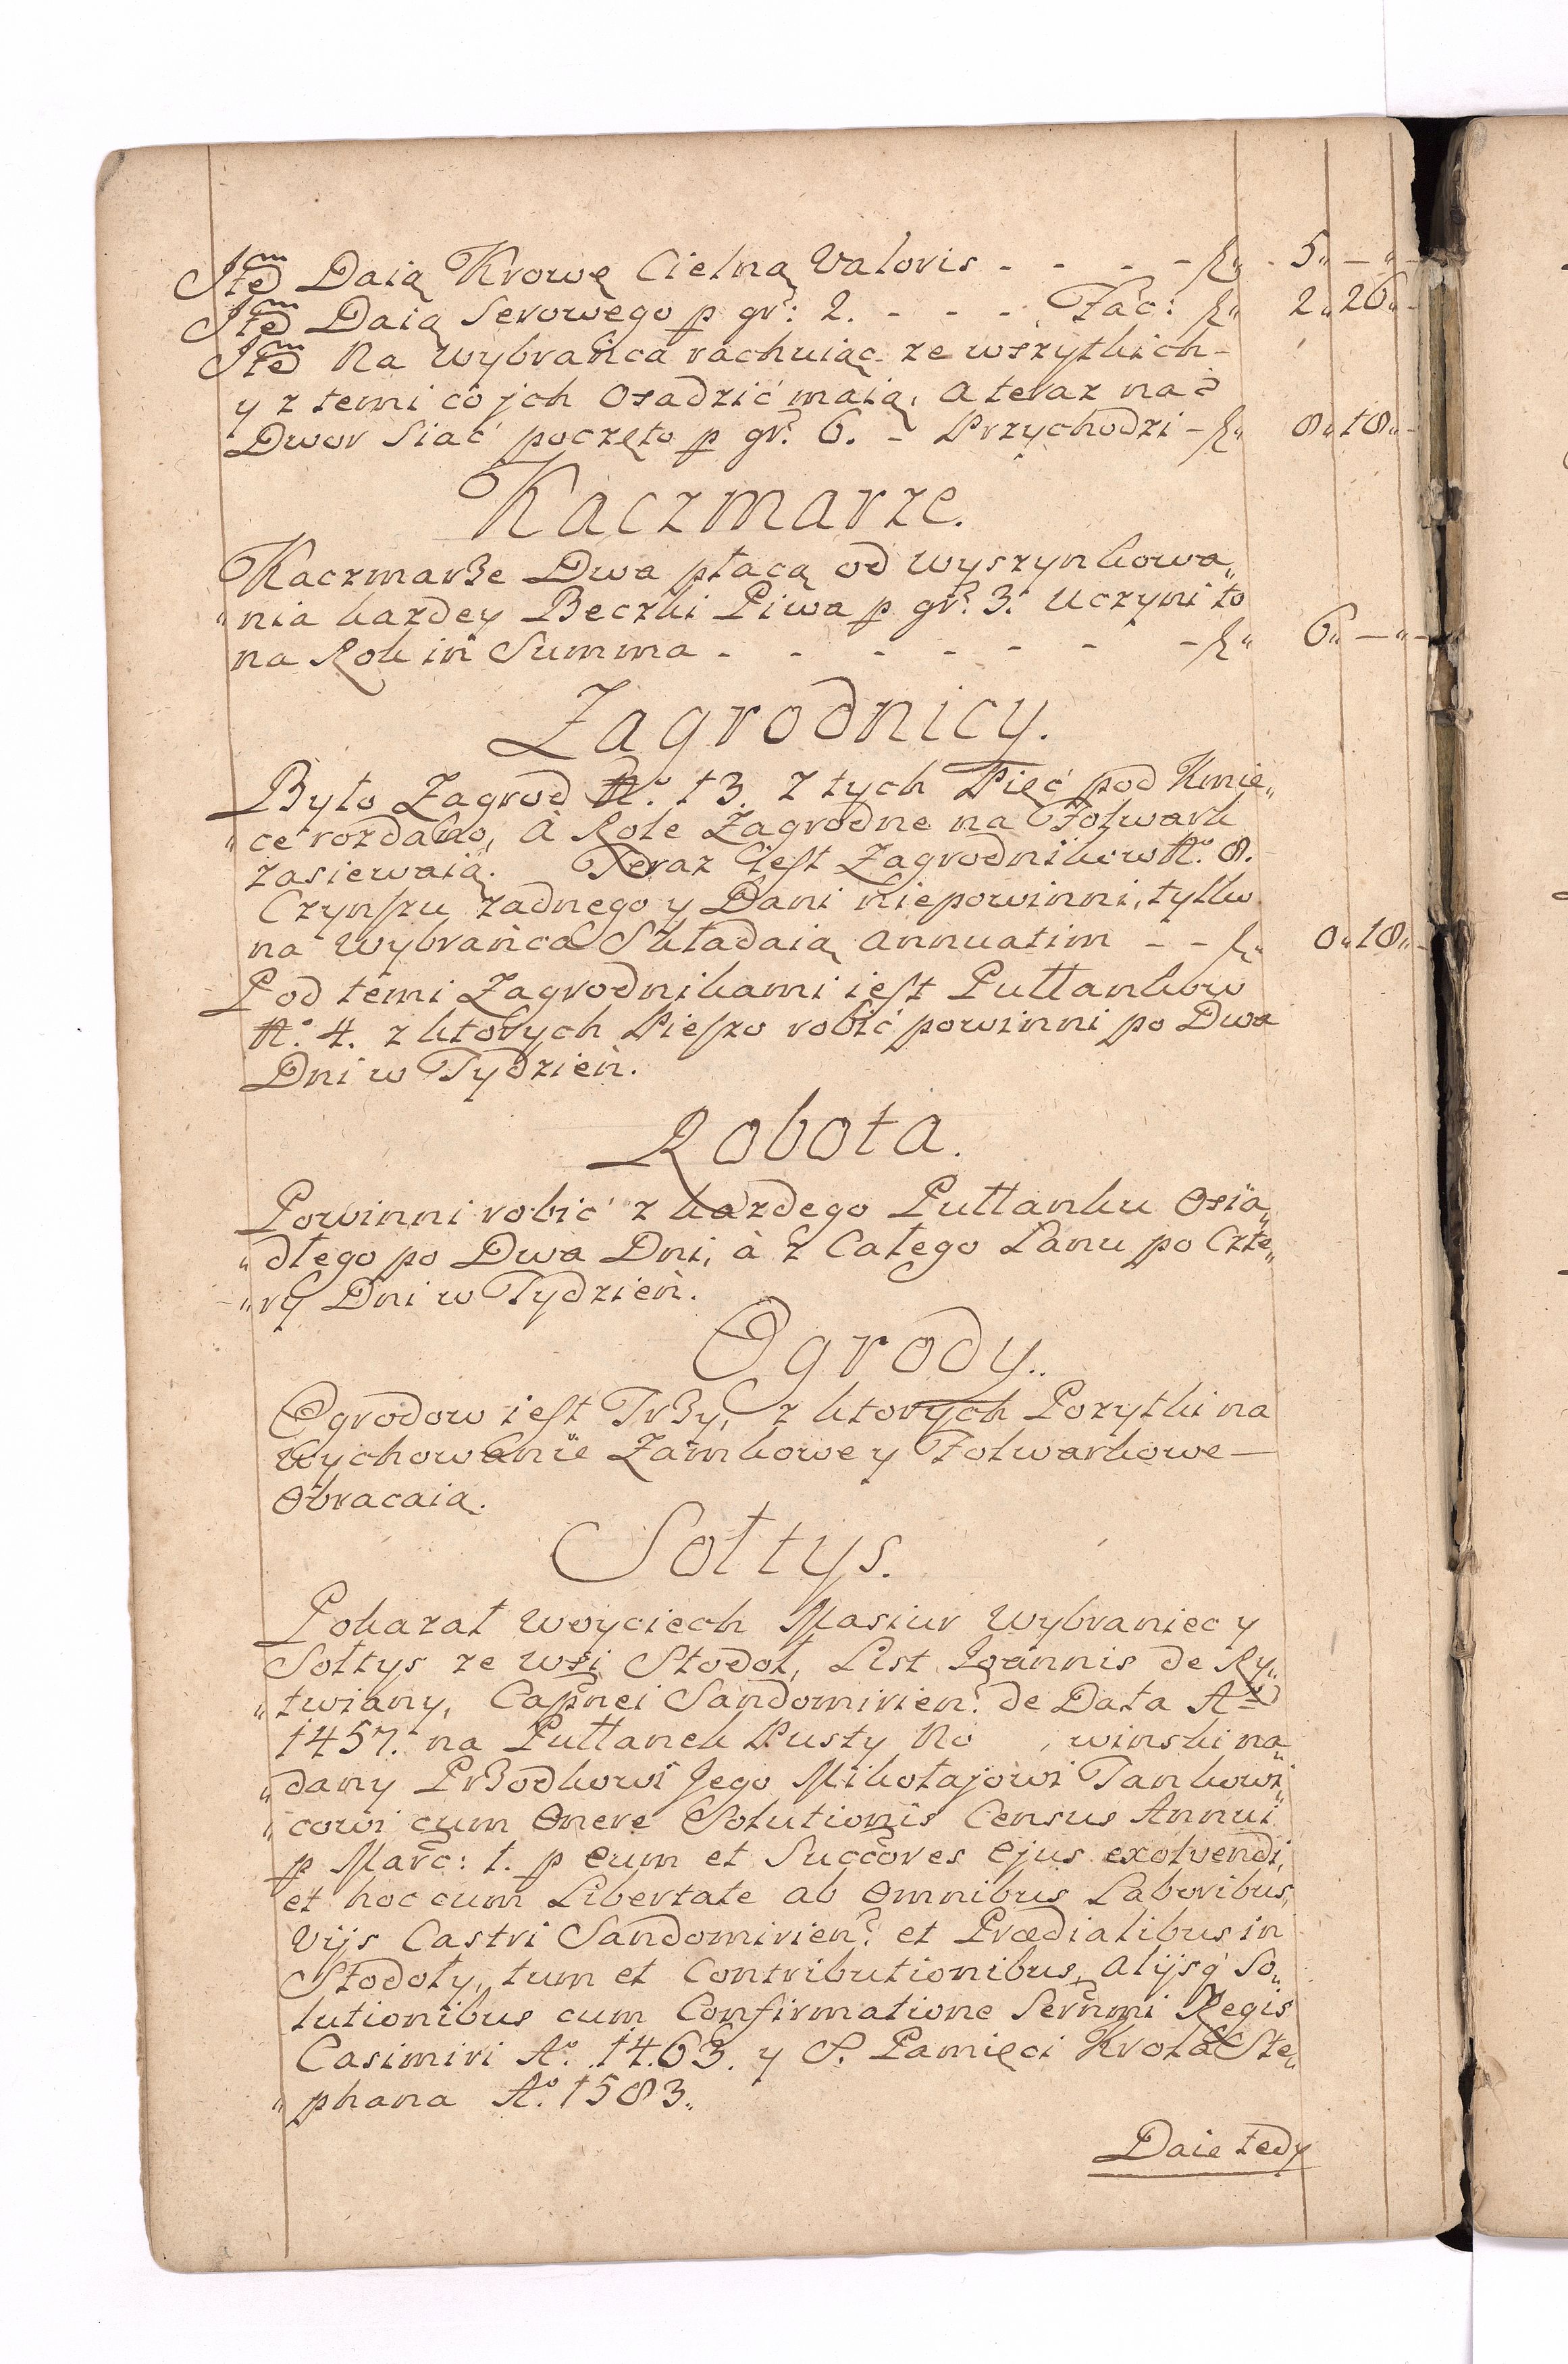 Jtem Daią Krowę Cielną Valoris - - - - f„ 5„ — „ -
Jtem Daią Serowego p gr: 2. - - - Fac: f„ 2„ 26„ -
Jtem Na wybrańca rachuiąc ze wszytkich -
y z temi co jch Osadzić maią, a teraz na
Dwor Siać poczęto p gr: 6. - Przychodzi - f„ 8„ 18„ -
Kaczmarze.
Kaczmarze Dwa płacą od wyszynkowa„
„nia kazdey Beczki Piwa p gr: 3. Uczyni to
na Rok in Summa - - - - - - - f„ 6„ — „ -
Zagrodnicy.
Było Zagrod No. 13. Z tych Pięć pod Kmie„
„ce rozdano, à Role Zagrodne na Folwark
zasiewaią. Teraz iest Zagrodnikow No. 8.
Czynszu zadnego y Dani niepowinni, tylko
na Wybrańca Składaią annuatim - - f„ 0„ 18„ -
Pod temi Zagrodnikami iest Pułłankow
No. 4. z ktorych Pieszo robić powinni po Dwa
Dni w Tydzień.
Robota.
Powinni robić z kazdego Pułłanku Osia„
„dłego po Dwa Dni, à z Całego Łanu po Czte„
„ry Dni w Tydzień.
Ogrody.
Ogrodow iest Trzy, z ktorych Pozytki na
Wychowanie Zamkowe y Folwarkowe —
Obracaią.
Sołtys.
Pokazał Woyciech Masiur Wybraniec y
Sołtys ze wsi Stodoł, List Joannis de Ry„
„twiany, Capnei Sandomirien: de Data Ao
1457. na Pułłanek Pusty No , winski na„
„dany Przodkowi Jego Mikołajowi Tankowi„
„cowi cum Onere Solutionis Census Annui
p Marc: 1. p eum et Succores ejus exolvendi,
et hoc cum Libertate ab Omnibus Laboribus,
Vijs Castri Sandomirien: et Prædialibus in
Stodoły, tum et Contributionibus, alijsq So„
lutionibus cum Confirmatione Sernmi Regis
Casimiri Ao. 1463. y S. Pamięci Krola Ste„
„phana Ao. 1583.
Daie tedy